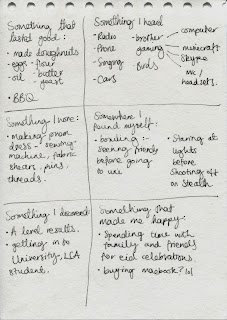 Something that
tasted good:
• made doughnuts
• eggs - flour
oil - butter
yeast
• BBQ
Something I heard
- Radio
- Phone
- Singing
- Cars
- brother
gaming
- Birds
computer
minecraft
skype
mic/
headsets.
Something I wore:
• Making prom
dress - sewing
machine, fabric
shears, pins,
threads.
Somewhere I
found myself:
• bowling :-
seeing friends
before going
to uni
• Staring at
lights
before
shooting off
on Stealth
Something I discovered
• A level results.
• getting in to
University, LCA
student.
Something that
made me happy:
• Spending time with
family and friends
for eid celebrations.
• buying macbook? lol